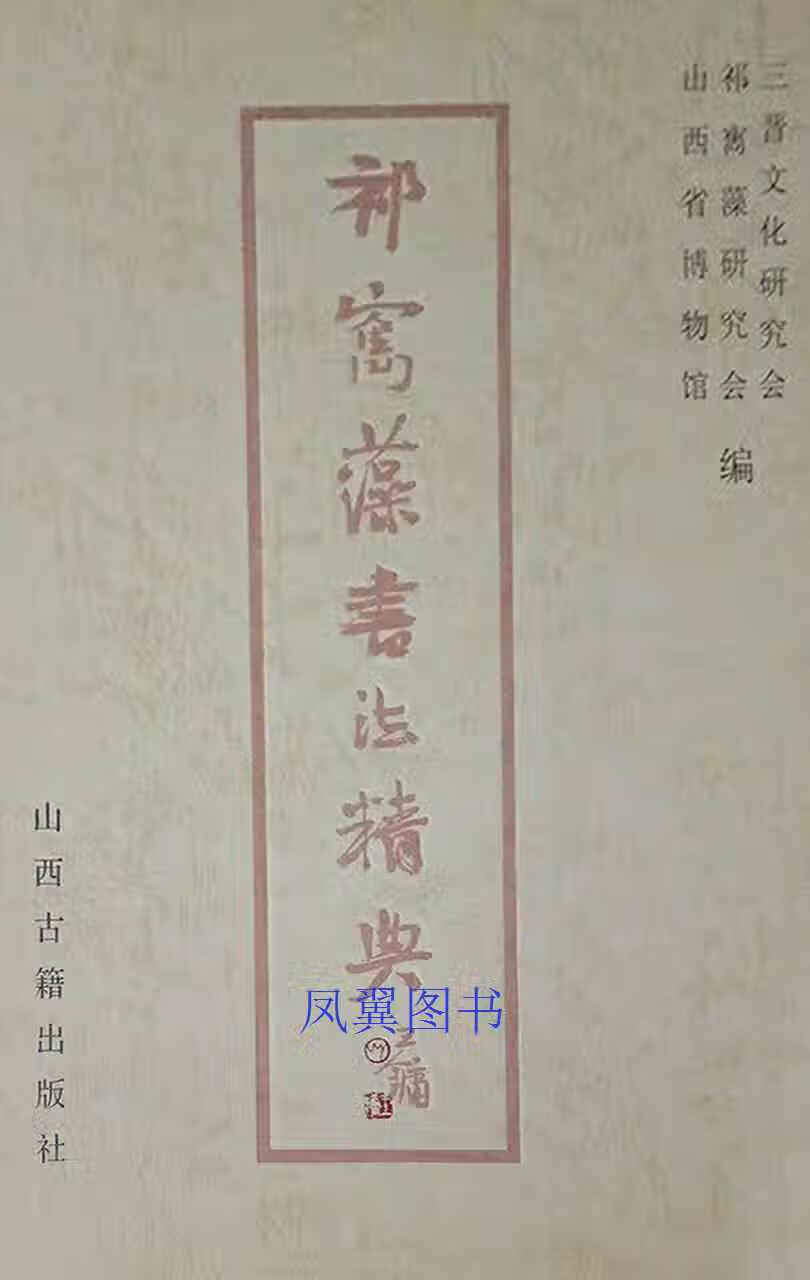 三晋文化研究会
祁寯藻研究会
山西省博物馆
编
祁寯藻书法精典
凤翼图书
山西古籍出版社